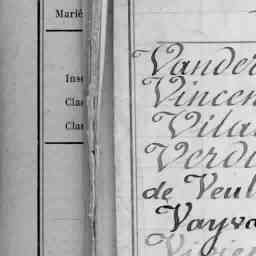 Marié
Inse
Clas
Clas
Vander
Vincen
Vilar
Verdu
de Veul
Vayva
Vivien